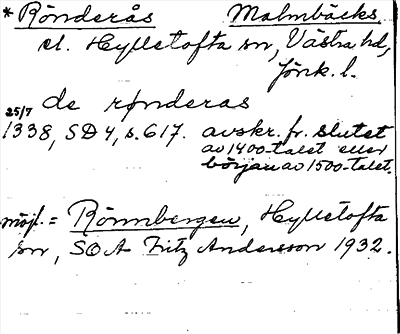 *Rönderås Malmbäcks
el. Hylletofta sn, Västra hd,
Jönk. l.
de rønderas
25/7
1338, SD 4, s. 617. avskr. fr. slutet
av 1400-talet eller
början av 1500-talet.
möjl. = Rönnbergen, Hylletofta
sn, SOA Fritz Andersson 1932.